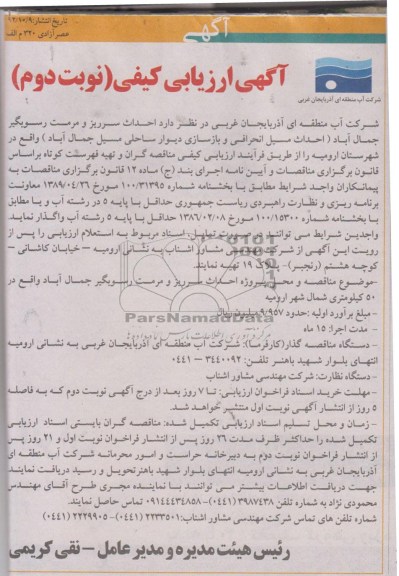 تاریخ انتشار: ۹۲/۱۰/۹
عصر آزادی ۳۲۰ م الف
آگهی
آگهی ارزیابی کیفی (نوبت دوم)
شرکت آب منطقه ای آذربایجان غربی
شرکت آب منطقه ای آذربایجان غربی در نظر دارد احداث سرریز و مرمت رسوبگیر
جمال آباد ( احداث مسیل انحرافی و بازسازی دیوار ساحلی مسیل جمال آباد ) واقع در
شهرستان ارومیه را از طریق فرآیند ارزیابی کیفی مناقصه گران و تهیه فهرست کوتاه براساس
قانون برگزاری مناقصات و آیین نامه اجرای بند (ج) ماده ۱۲ قانون برگزاری مناقصات به
پیمانکاران واجد شرایط مطابق با بخشنامه شماره ۱۰۰/۳۱۳۹۵ مورخ ۱۳۸۹/۰۴/۲۶ معاونت
برنامه ریزی و نظارت راهبردی ریاست جمهوری حداقل با پایه ۵ در رشته آب و یا مطابق
با بخشنامه شماره ۱۰۰/۱۵۳۰۰ مورخ ۱۳۸۶/۰۲/۰۸ حداقل با پایه ۵ رشته آب واگذار نماید.
واجدین شرایط می توانند در صورت تمایل، اسناد مربوط به استعلام ارزیابی را پس از
رویت این آگهی از شرکت مهندسی مشاور اشناب به نشانی ارومیه – خیابان کاشانی –
کوچه هشتم (رنجبر)– پلاک ۱۹ تهیه نمایند.
-موضوع مناقصه و محل: پروژه احداث سرریز و مرمت رسوبگیر جمال آباد واقع در
۵۰ کیلومتری شمال شهر ارومیه
- مبلغ برآورد اولیه :حدود ۹/۹۵۷ میلیون ریال
- مدت اجرا: ۱۵ ماه
- دستگاه مناقصه گذار(کارفرما): شرکت آب منطقه ای آذربایجان غربی به نشانی ارومیه
انتهای بلوار شهید باهنر تلفن: ۳۴۴۰۰۹۲ – ۰۴۴۱
- دستگاه نظارت: شرکت مهندسی مشاور اشناب
- مهلت خرید اسناد فراخوان ارزیابی: تا ۷ روز بعد از درج آگهی نوبت دوم که به فاصله
۵ روز از انتشار آگهی نوبت اول منتشر خواهد شد.
- زمان و محل تسلیم اسناد ارزیابی تکمیل شده: مناقصه گران بایستی اسناد ارزیابی
تکمیل شده را حداکثر ظرف مدت ۲۶ روز پس از انتشار فراخوان نوبت اول و ۲۱ روز پس
از انتشار فراخوان نوبت دوم به دبیرخانه حراست و امور محرمانه شرکت آب منطقه ای
آذربایجان غربی به نشانی ارومیه انتهای بلوار شهید باهنر تحویل و رسید دریافت نمایند.
جهت دریافت اطلاعات بیشتر می توانند با نماینده مجری طرح آقای مهندس
محمودی نژاد به شماره تلفن ۳۹۸۷۴۳۸ (۰۴۴۱)- ۰۹۱۴۴۴۳۴۸۵۸ تماس حاصل نمایند.
شماره تلفن های تماس شرکت مهندسی مشاور اشناب:۲۲۳۳۵۰۱ (۰۴۴۱)– ۲۲۲۹۹۰۵ (۰۴۴۱)
رئیس هیئت مدیره و مدیر عامل – نقی کریمی
ParsNamadData